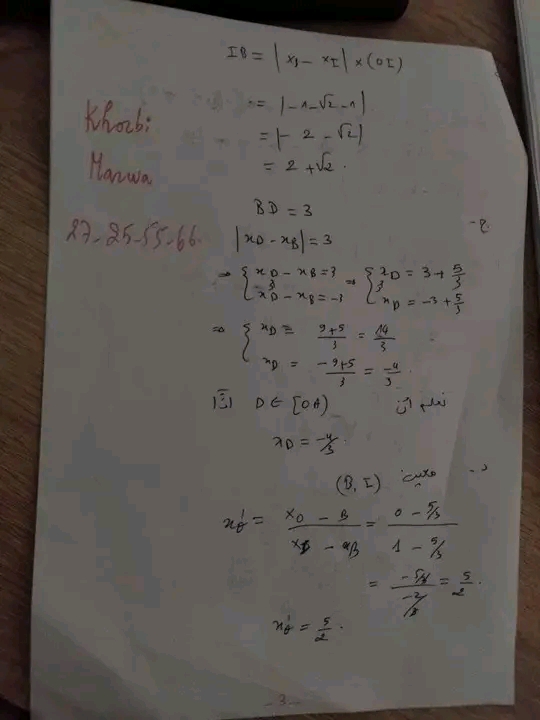 IB = | xB - xI | × (OI)
= |-1-√2-1|
= |- 2 - √2|
= 2 + √2 .
Khorbi
Marwa
27-25-55-66.
BD = 3
|xD - xB| = 3
⇒ { xD - xB = 3 ⇒ { xD = 3 + 5/3
xD - xB = -3 xD = -3 + 5/3
⇒ { xD = 9+5/3 = 14/3
xD = -9+5/3 = -4/3 .
نعلم أن D ∈ [OA) إذًا
xD = -4/3 .
(B, I)
x'O = xO - B / xI - xB = 0 - 5/3 / 1 - 5/3
= -5/3 / -2/3 = 5/2 .
x'O = 5/2 .
- 3 -